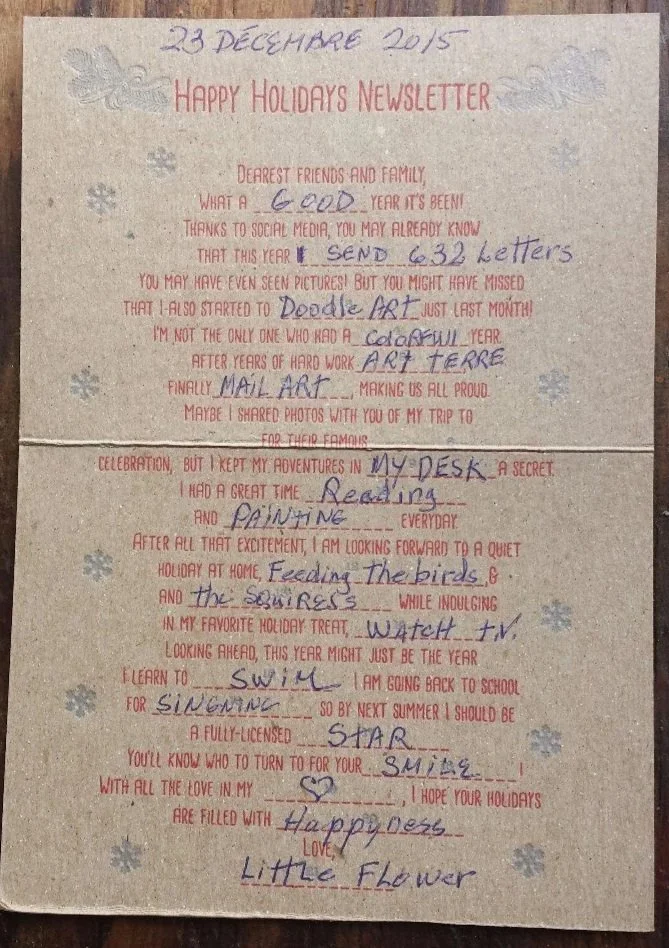 23 DÉCEMBRE 2015
HAPPY HOLIDAYS NEWSLETTER
DEAREST FRIENDS AND FAMILY,
WHAT A GOOD YEAR IT'S BEEN!
THANKS TO SOCIAL MEDIA, YOU MAY ALREADY KNOW
THAT THIS YEAR I SEND 632 Letters
YOU MAY HAVE EVEN SEEN PICTURES! BUT YOU MIGHT HAVE MISSED
THAT I ALSO STARTED TO Doodle ART JUST LAST MONTH!
I'M NOT THE ONLY ONE WHO HAD A COLORFWL YEAR.
AFTER YEARS OF HARD WORK ART TERRE
FINALLY MAIL ART, MAKING US ALL PROUD.
MAYBE I SHARED PHOTOS WITH YOU OF MY TRIP TO
FOR THEIR FAMOUS
CELEBRATION, BUT I KEPT MY ADVENTURES IN MY DESK A SECRET.
I HAD A GREAT TIME Reading
AND PAINTING EVERYDAY.
AFTER ALL THAT EXCITEMENT, I AM LOOKING FORWARD TO A QUIET
HOLIDAY AT HOME, Feeding The birds &
AND the SQUIRESS WHILE INDULGING
IN MY FAVORITE HOLIDAY TREAT, WATCH T.V.
LOOKING AHEAD, THIS YEAR MIGHT JUST BE THE YEAR
I LEARN TO SWIM I AM GOING BACK TO SCHOOL
FOR SINGNING SO BY NEXT SUMMER I SHOULD BE
A FULLY-LICENSED STAR
YOU'LL KNOW WHO TO TURN TO FOR YOUR SMILE !
WITH ALL THE LOVE IN MY ♡, I HOPE YOUR HOLIDAYS
ARE FILLED WITH Happyness
LOVE,
Little Flower